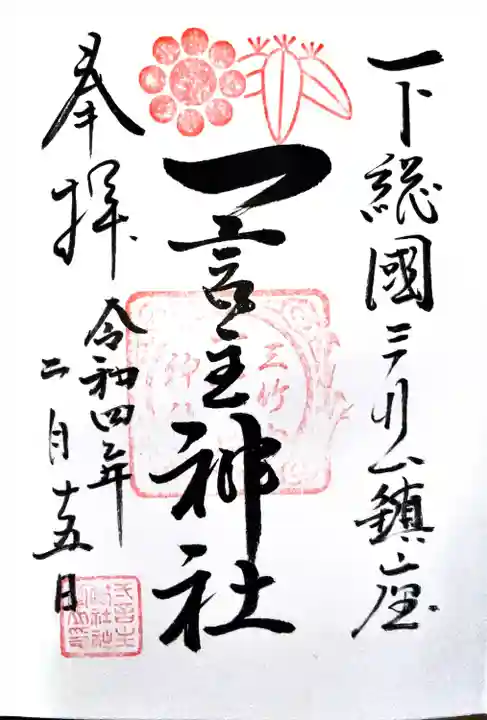 下総國三竹山鎮座
一言主神社
奉拝
令和四年
二月十五日